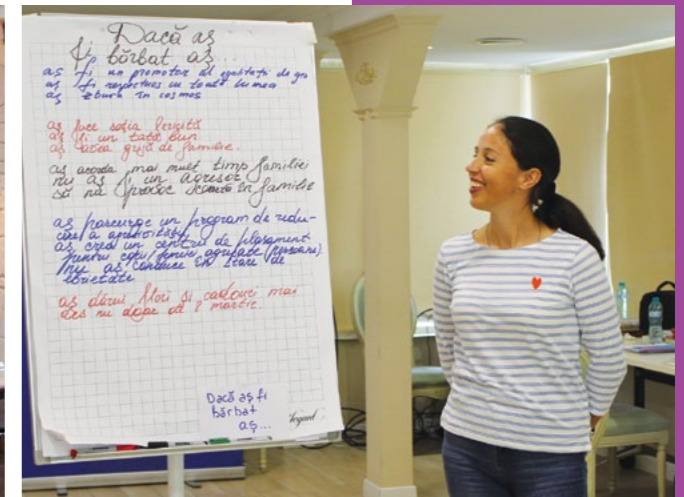 Dacă aș
fi bărbat aș...
aș fi un promotor al egalității de gen
aș fi respectuos cu toată lumea
aș zbura în cosmos
aș face soția fericită
aș fi un tată bun
aș avea grijă de familie.
aș acorda mai mult timp familiei
nu aș fi un agresor
să nu provoc scandal în familie
aș parcurge un program de redu-
cere a agresivității
aș crea un centru de plasament
pentru copii/femei agresate (persoane)
nu aș conduce în stare de
ebrietate
aș dărui flori și cadouri mai
des nu doar de 8 martie.
Dacă aș fi
bărbat
aș...
legamaster